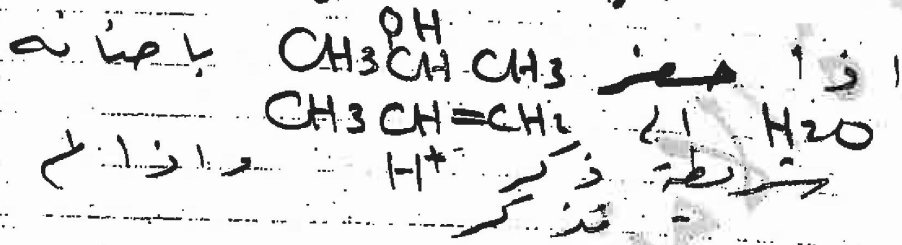 OH
اذا حضر CH3CH-CH3 باضافة
H2O الى CH3CH=CH2
شريطة ذكر H+ واذا لم
تذكر